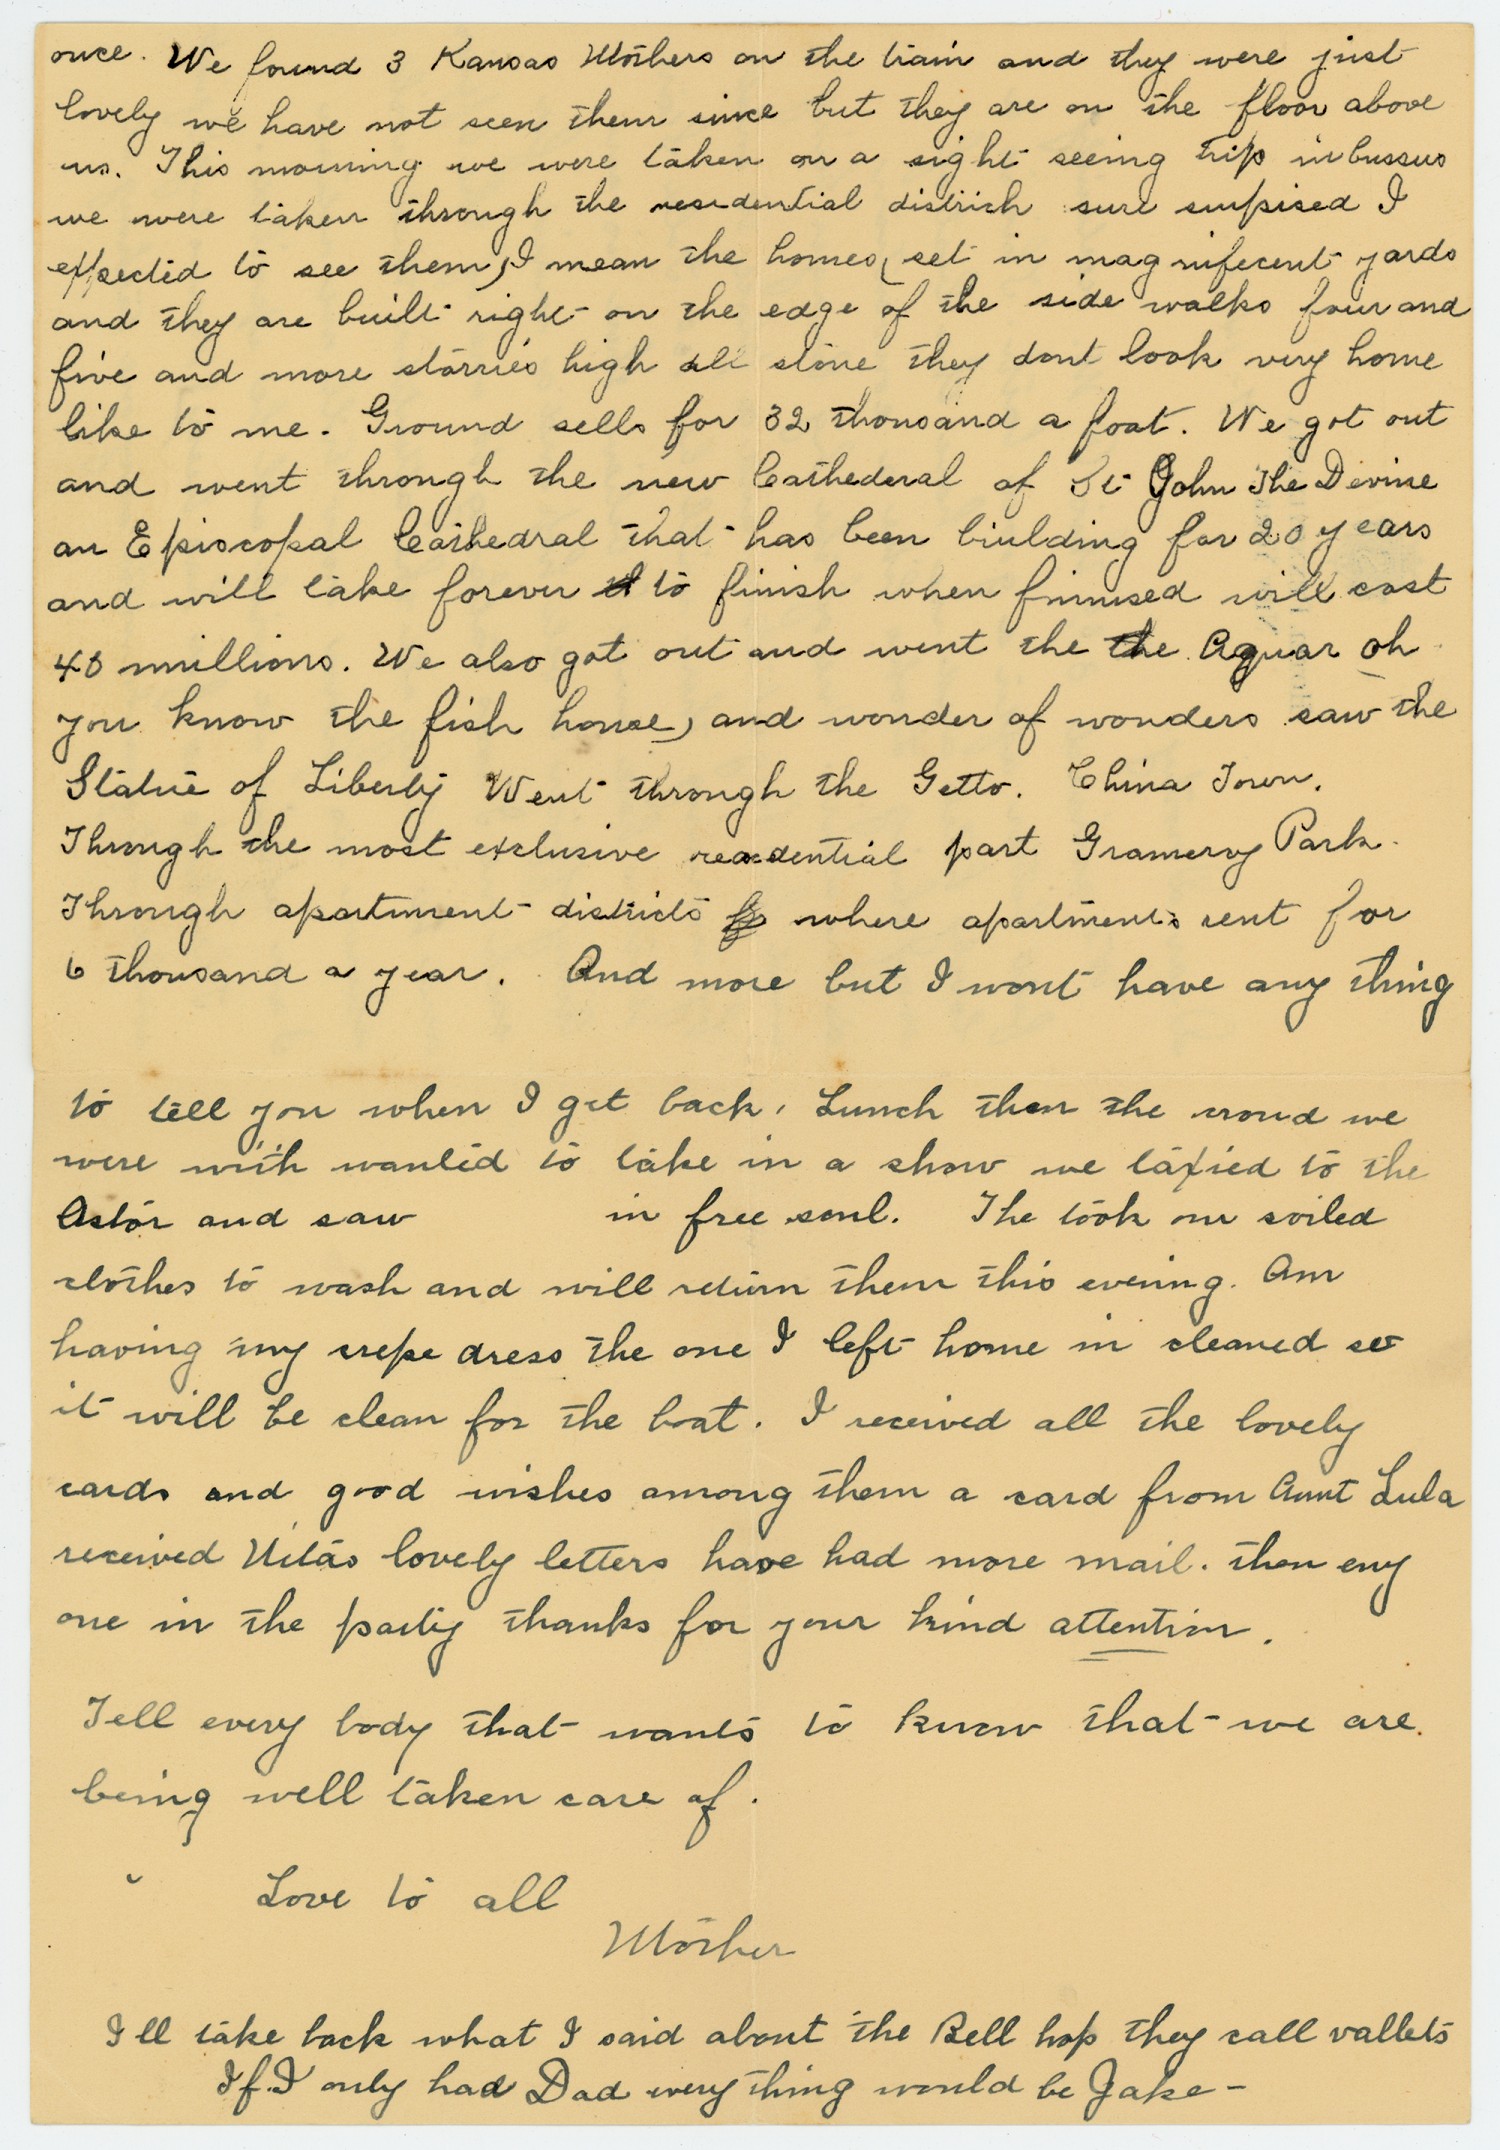 once. We found 3 Kansas Mothers on the train and they were just
lovely we have not seen them since but they are on the floor above
us. This morning we were taken on a sight seeing trip in bussus
we were taken through the residential districh sure surpised I
expected to see them, I mean the homes, set in magnifecent yards
and they are built right on the edge of the side walks four and
five and more storries high all stone they dont look very home
like to me. Ground sells for 32 thousand a foot. We got out
and went through the new Cathederal of St John The Devine
an Episcopal Cathedral that has been biulding for 20 years
and will take forever to finish when finnised will cost
40 millions. We also got out and went the the Aquar oh
you know the fish house, and wonder of wonders saw the
Statue of Liberty Went through the Getto. China Town.
Through the most exclusive readential part Gramercy Park.
Through apartment districts where apartments rent for
6 thousand a year. And more but I wont have any thing
to tell you when I get back. Lunch then the croud we
were with wanted to take in a show we taxied to the
Astor and saw in free soul. The took our soiled
clothes to wash and will return them this evening. Am
having my crepe dress the one I left home in cleaned so
it will be clean for the boat. I received all the lovely
cards and good wishes among them a card from Aunt Lula
received Nitas lovely letters have had more mail. then eny
one in the party thanks for your kind attention.
Tell every body that wants to know that we are.
being well taken care of.
Love to all
Mother
Ill take back what I said about the Bell hop they call vallets
If I only had Dad every thing would be Jake-